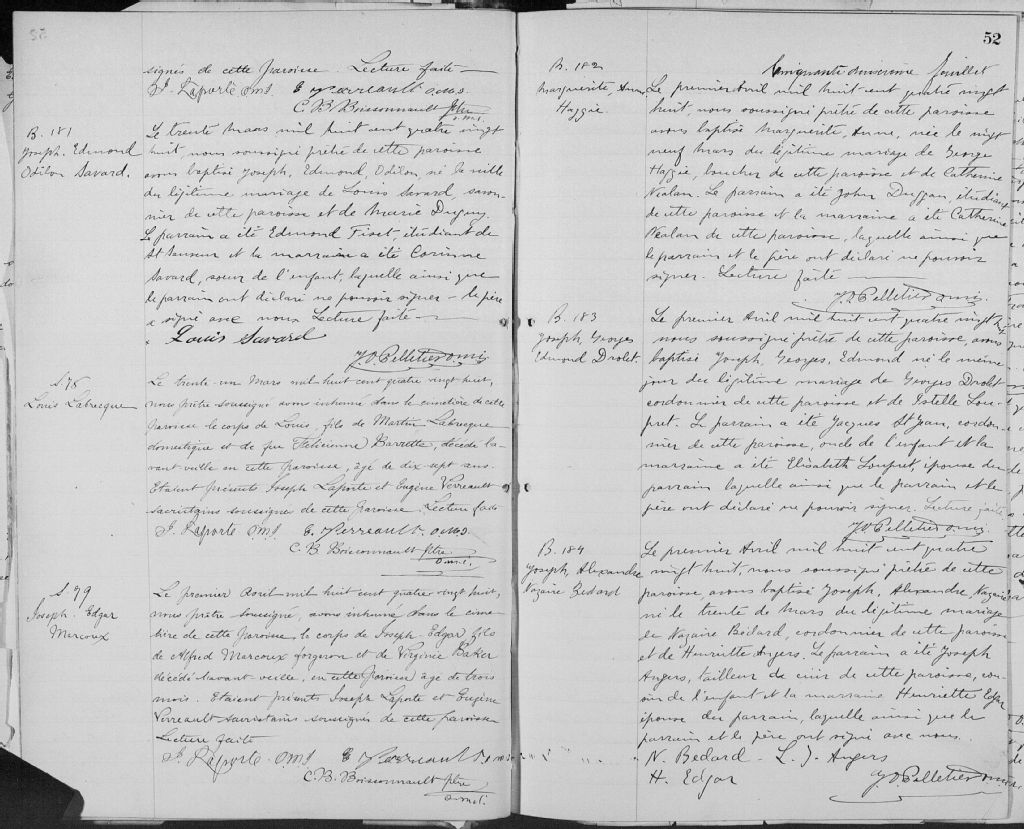 signés de cette paroisse. Lecture faite
J. Laporte o.m.I. E. Verreault o.m.s
C. B. Boissonnault ptre
o.m.i.
B. 181
Joseph. Edmond
Odilon Savard.
Le trente mars mil huit cent quatre vingt
huit, nous soussigné prêtre de cette paroisse
avons baptisé Joseph, Edmond, Odilon, né la veille
du légitime mariage de Louis Savard, savon-
nier de cette paroisse et de Marie Duguy.
Le parrain a été Edmond Fiset, étudiant de
St Sauveur et la marraine a été Corinne
Savard, soeur de l'enfant, laquelle ainsi que
le parrain ont déclaré ne pouvoir signer - le père
a signé avec nous Lecture faite -
Louis Savard
J. O. Pelletier o.m.i.
S. 78
Louis Labrecque
Le trente un Mars mil huit cent quatre vingt huit,
nous prêtre soussigné avons inhumé dans le cimetière de cette
paroisse le corps de Louis, fils de Martin Labrecque
domestique et de feu Barrette, décédé l'a-
vant veille en cette paroisse, âgé de dix sept ans.
Etaient présents Joseph Laporte et Eugène Verreault
sacristains soussignés de cette paroisse. Lecture faite
J. Laporte O.M.I. E. Verreault. o.m.s
C. B. Boissonnault ptre
o.m.i.
S. 79
Joseph. Edgar
Marcoux
Le premier Avril mil huit cent quatre vingt huit,
nous prêtre soussigné, avons inhumé dans le cime-
tière de cette paroisse, le corps de Joseph. Edgar, fils
de Alfred Marcoux forgeron et de Virginie Baker
décédé l'avant veille, en cette paroisse âgé de trois
mois. Etaient présents Joseph Laporte et Eugène
Verreault sacristains soussignés de cette paroisse
Lecture faite
J. Laporte. O.M.I E. Verreault o.m.s
C. B. Boissonnault ptre
o.m.i.
52
Cinquante deuxième feuillet
B. 182
Marguerite, Anne
Haggie.
Le premier Avril mil huit cent quatre vingt
huit, nous soussigné prêtre de cette paroisse
avons baptisé Marguerite, Anne, née le vingt
neuf Mars du légitime mariage de George
Haggie, boucher de cette paroisse et de Catherine
Nealan. Le parrain a été John Duggan, étudiant
de cette paroisse et la marraine a été Catherine
Nealan de cette paroisse, laquelle ainsi que
le parrain et le père ont déclaré ne pouvoir
signer. Lecture faite
J. O. Pelletier o.m.i.
B. 183
Joseph Georges
Edmond Drolet.
Le premier Avril mil huit cent quatre vingt huit
nous soussigné prêtre de cette paroisse, avons
baptisé Joseph, Georges, Edmond né le même
jour du légitime mariage de Georges Drolet
cordonnier de cette paroisse et de Estelle Lou-
pret. Le parrain a été Jacques St Jean, cordon-
nier de cette paroisse, oncle de l'enfant et la
marraine a été Elisabeth Loupret épouse du
parrain laquelle ainsi que le parrain et le
père ont déclaré ne pouvoir signer. Lecture faite
J. O. Pelletier o.m.i.
B. 184
Joseph, Alexandre
Nazaire Bedard
Le premier Avril mil huit cent quatre
vingt huit, nous soussigné prêtre de cette
paroisse avons baptisé Joseph, Alexandre Nazaire
né le trente de mars du légitime mariage
de Nazaire Bédard, cordonnier de cette paroisse
et de Henriette Angers. Le parrain a été Joseph
Angers, tailleur de cuir de cette paroisse, cou-
sin de l'enfant et la marraine Henriette Edgar
épouse du parrain, laquelle ainsi que le
parrain et le père ont signé avec nous.
N. Bedard - L. J. Angers
H. Edgar
J. O. Pelletier o.m.i.